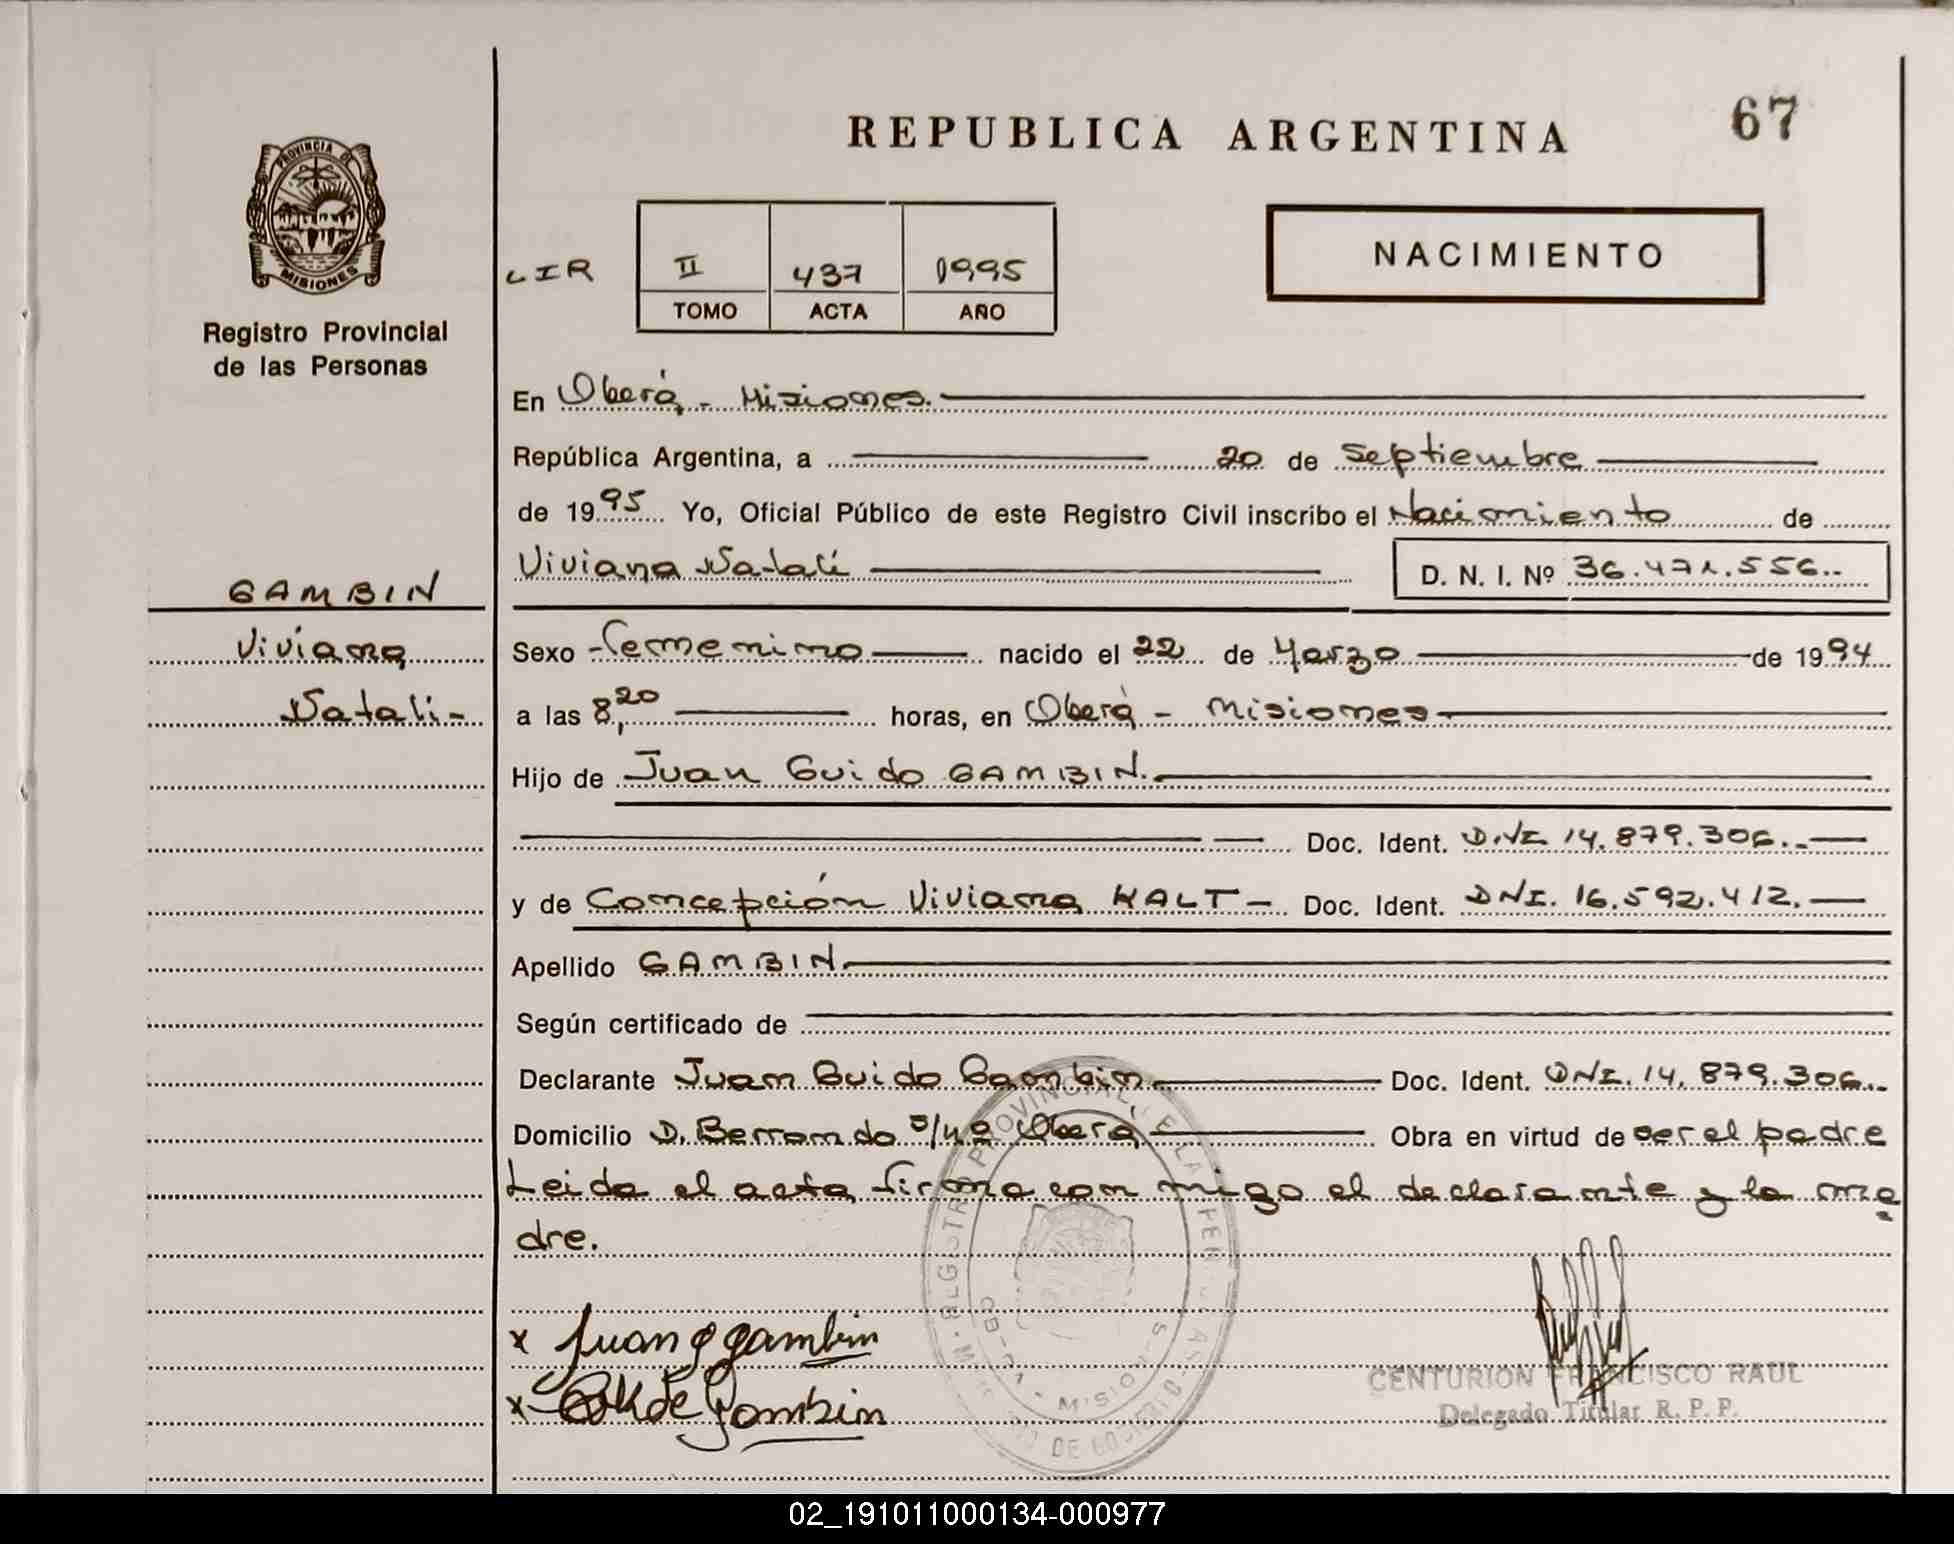 REPUBLICA ARGENTINA
67
PROVINCIA DE
MISIONES
Registro Provincial
de las Personas
LIR
II 437 1995
TOMO ACTA AÑO
NACIMIENTO
En Oberá - Misiones.
República Argentina, a 20 de Septiembre
de 1995 Yo, Oficial Público de este Registro Civil inscribo el Nacimiento de
Viviana Natali D. N. I. Nº 36.471.556.
GAMBIN
Viviana
Natali-
Sexo Femenino nacido el 22 de Marzo de 1994
a las 8,20 horas, en Oberá - Misiones
Hijo de Juan Guido GAMBIN.
Doc. Ident. DNI. 14.879.306.
y de Concepción Viviana KALT - Doc. Ident. DNI. 16.592.412.
Apellido GAMBIN.
Según certificado de
Declarante Juan Guido Gambin Doc. Ident. DNI. 14.879.306.
Domicilio D. Berrondo s/nº Oberá Obra en virtud de ser el padre
Leida el acta firma con migo el declarante y la ma
dre.
x Juan G Gambin
x de Gambin
CENTURION FRANCISCO RAUL
Delegado Titular R. P. P.
02_191011000134-000977